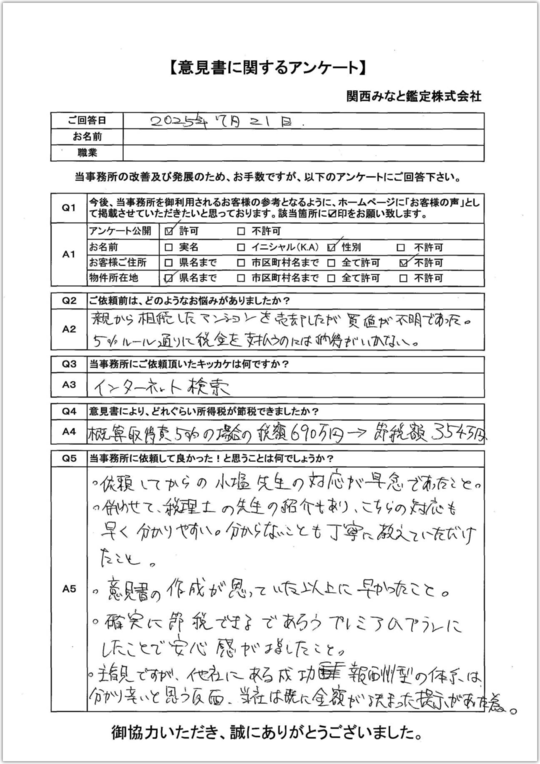 【意見書に関するアンケート】
関西みなと鑑定株式会社
ご回答日 2025年7月21日.
お名前
職業
当事務所の改善及び発展のため、お手数ですが、以下のアンケートにご回答下さい。
Q1 今後、当事務所を御利用されるお客様の参考となるように、ホームページに「お客様の声」として掲載させていただきたいと思っております。該当箇所に☑印をお願い致します。
A1
アンケート公開 ☑ 許可 □ 不許可
お名前 □ 実名 □ イニシャル(K.A) ☑ 性別 □ 不許可
お客様ご住所 □ 県名まで □ 市区町村名まで □ 全て許可 ☑ 不許可
物件所在地 ☑ 県名まで □ 市区町村名まで □ 全て許可 □ 不許可
Q2 ご依頼前は、どのようなお悩みがありましたか?
A2 親から相続したマンションを売却したが買値が不明であった。
5%ルール通りに税金を支払うのには納得がいかない。
Q3 当事務所にご依頼頂いたキッカケは何ですか?
A3 インターネット検索
Q4 意見書により、どれぐらい所得税が節税できましたか?
A4 概算取得費5%の場合の税額690万円→節税額354万円
Q5 当事務所に依頼して良かった!と思うことは何でしょうか?
A5
・依頼してからの小塩先生の対応が早急であったこと。
・併わせて、税理士の先生の紹介もあり、こちらの対応も
早く分かりやすい。分からないことも丁寧に教えていただけ
たこと。
・意見書の作成が思っていた以上に早かったこと。
・確実に節税できるであろうプレミアムプランに
したことで安心感が増したこと。
・主観ですが、他社にある成功報酬型の体系は
分かり辛いと思う反面、当社は既に金額が決まった提示があった為。
御協力いただき、誠にありがとうございました。